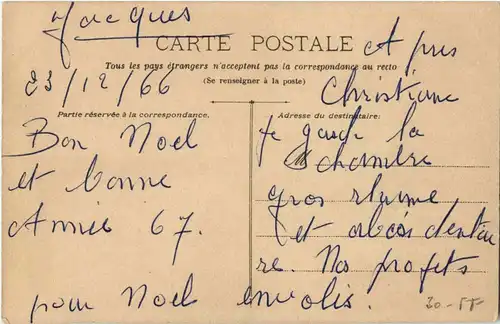 Jacques
CARTE POSTALE
Tous les pays étrangers n'acceptent pas la correspondance au recto
(Se renseigner à la poste)
23/12/66
Partie réservée à la correspondance.
Bon Noël
et bonne
Année 67.
Adresse du destinataire:
Apres
Christiane
je garde la
chambre
gros rhume
et abcès dentai
re. Nos projets
pour Noel envolés.
30-